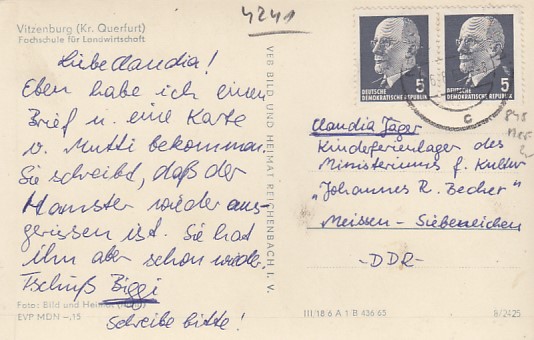 4241
Vitzenburg (Kr. Querfurt)
Fachschule für Landwirtschaft
Liebe Claudia!
Eben habe ich einen
Brief u. eine Karte
v. Mutti bekommen.
Sie schreibt, daß der
Hamster wieder aus-
gerissen ist. Sie hat
ihn aber schon wieder.
Tschüß Biggi
Schreibe bitte!
Foto: Bild und Heimat
EVP MDN -,15
VEB BILD UND HEIMAT REICHENBACH I. V.
5
DEUTSCHE
DEMOKRATISCHE REPUBLIK
5
DEUTSCHE
DEMOKRATISCHE REPUBLIK
c
Claudia Jäger
Kinderferienlager des
Ministeriums f. Kultur
"Johannes R. Becher"
Meissen - Siebeneichen
-DDR-
III/18 6 A 1 B 436 65
8/2425